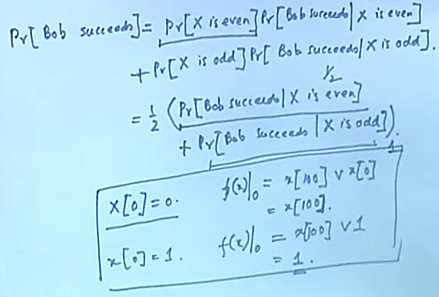 Pr[Bob succeeds] = Pr[X is even] Pr[Bob succeeds | X is even]
+ Pr[X is odd] Pr[Bob succeeds | X is odd].
1/2
= 1/2 (Pr[Bob succeeds | X is even]
+ Pr[Bob succeeds | X is odd]).
1
X[0] = 0. f(x)|0 = x[100] ∨ x[0]
= x[100].
x[0] = 1. f(x)|0 = x[100] ∨ 1
= 1.